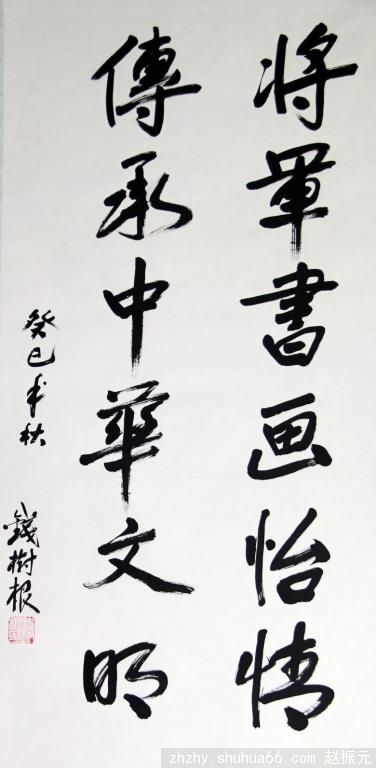 将軍書画怡情
傳承中華文明
癸巳年秋
錢樹根
zhzhy.shuhua66.com 赵振元